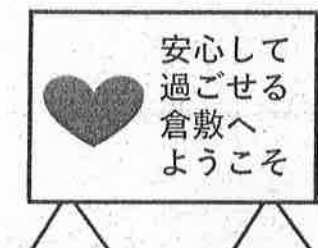 安心して
過ごせる
倉敷へ
ようこそ